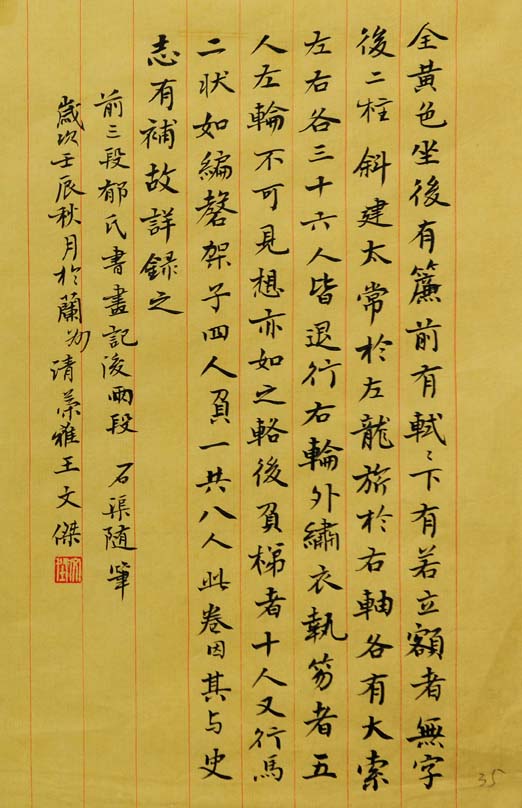 全黃色坐後有簾前有軾〻下有若立額者無字
後二柱斜建太常於左龍旂於右軸各有大索
左右各三十六人皆退行右輪外繡衣執笏者五
人左輪不可見想亦如之輅後負梯者十人又行馬
二狀如編磬架子四人負一共八人此卷因其与史
志有補故詳録之
前三段郁氏書畫記後兩段 石渠随筆
歲次壬辰秋月於蘭州清蘂雅王文傑
35